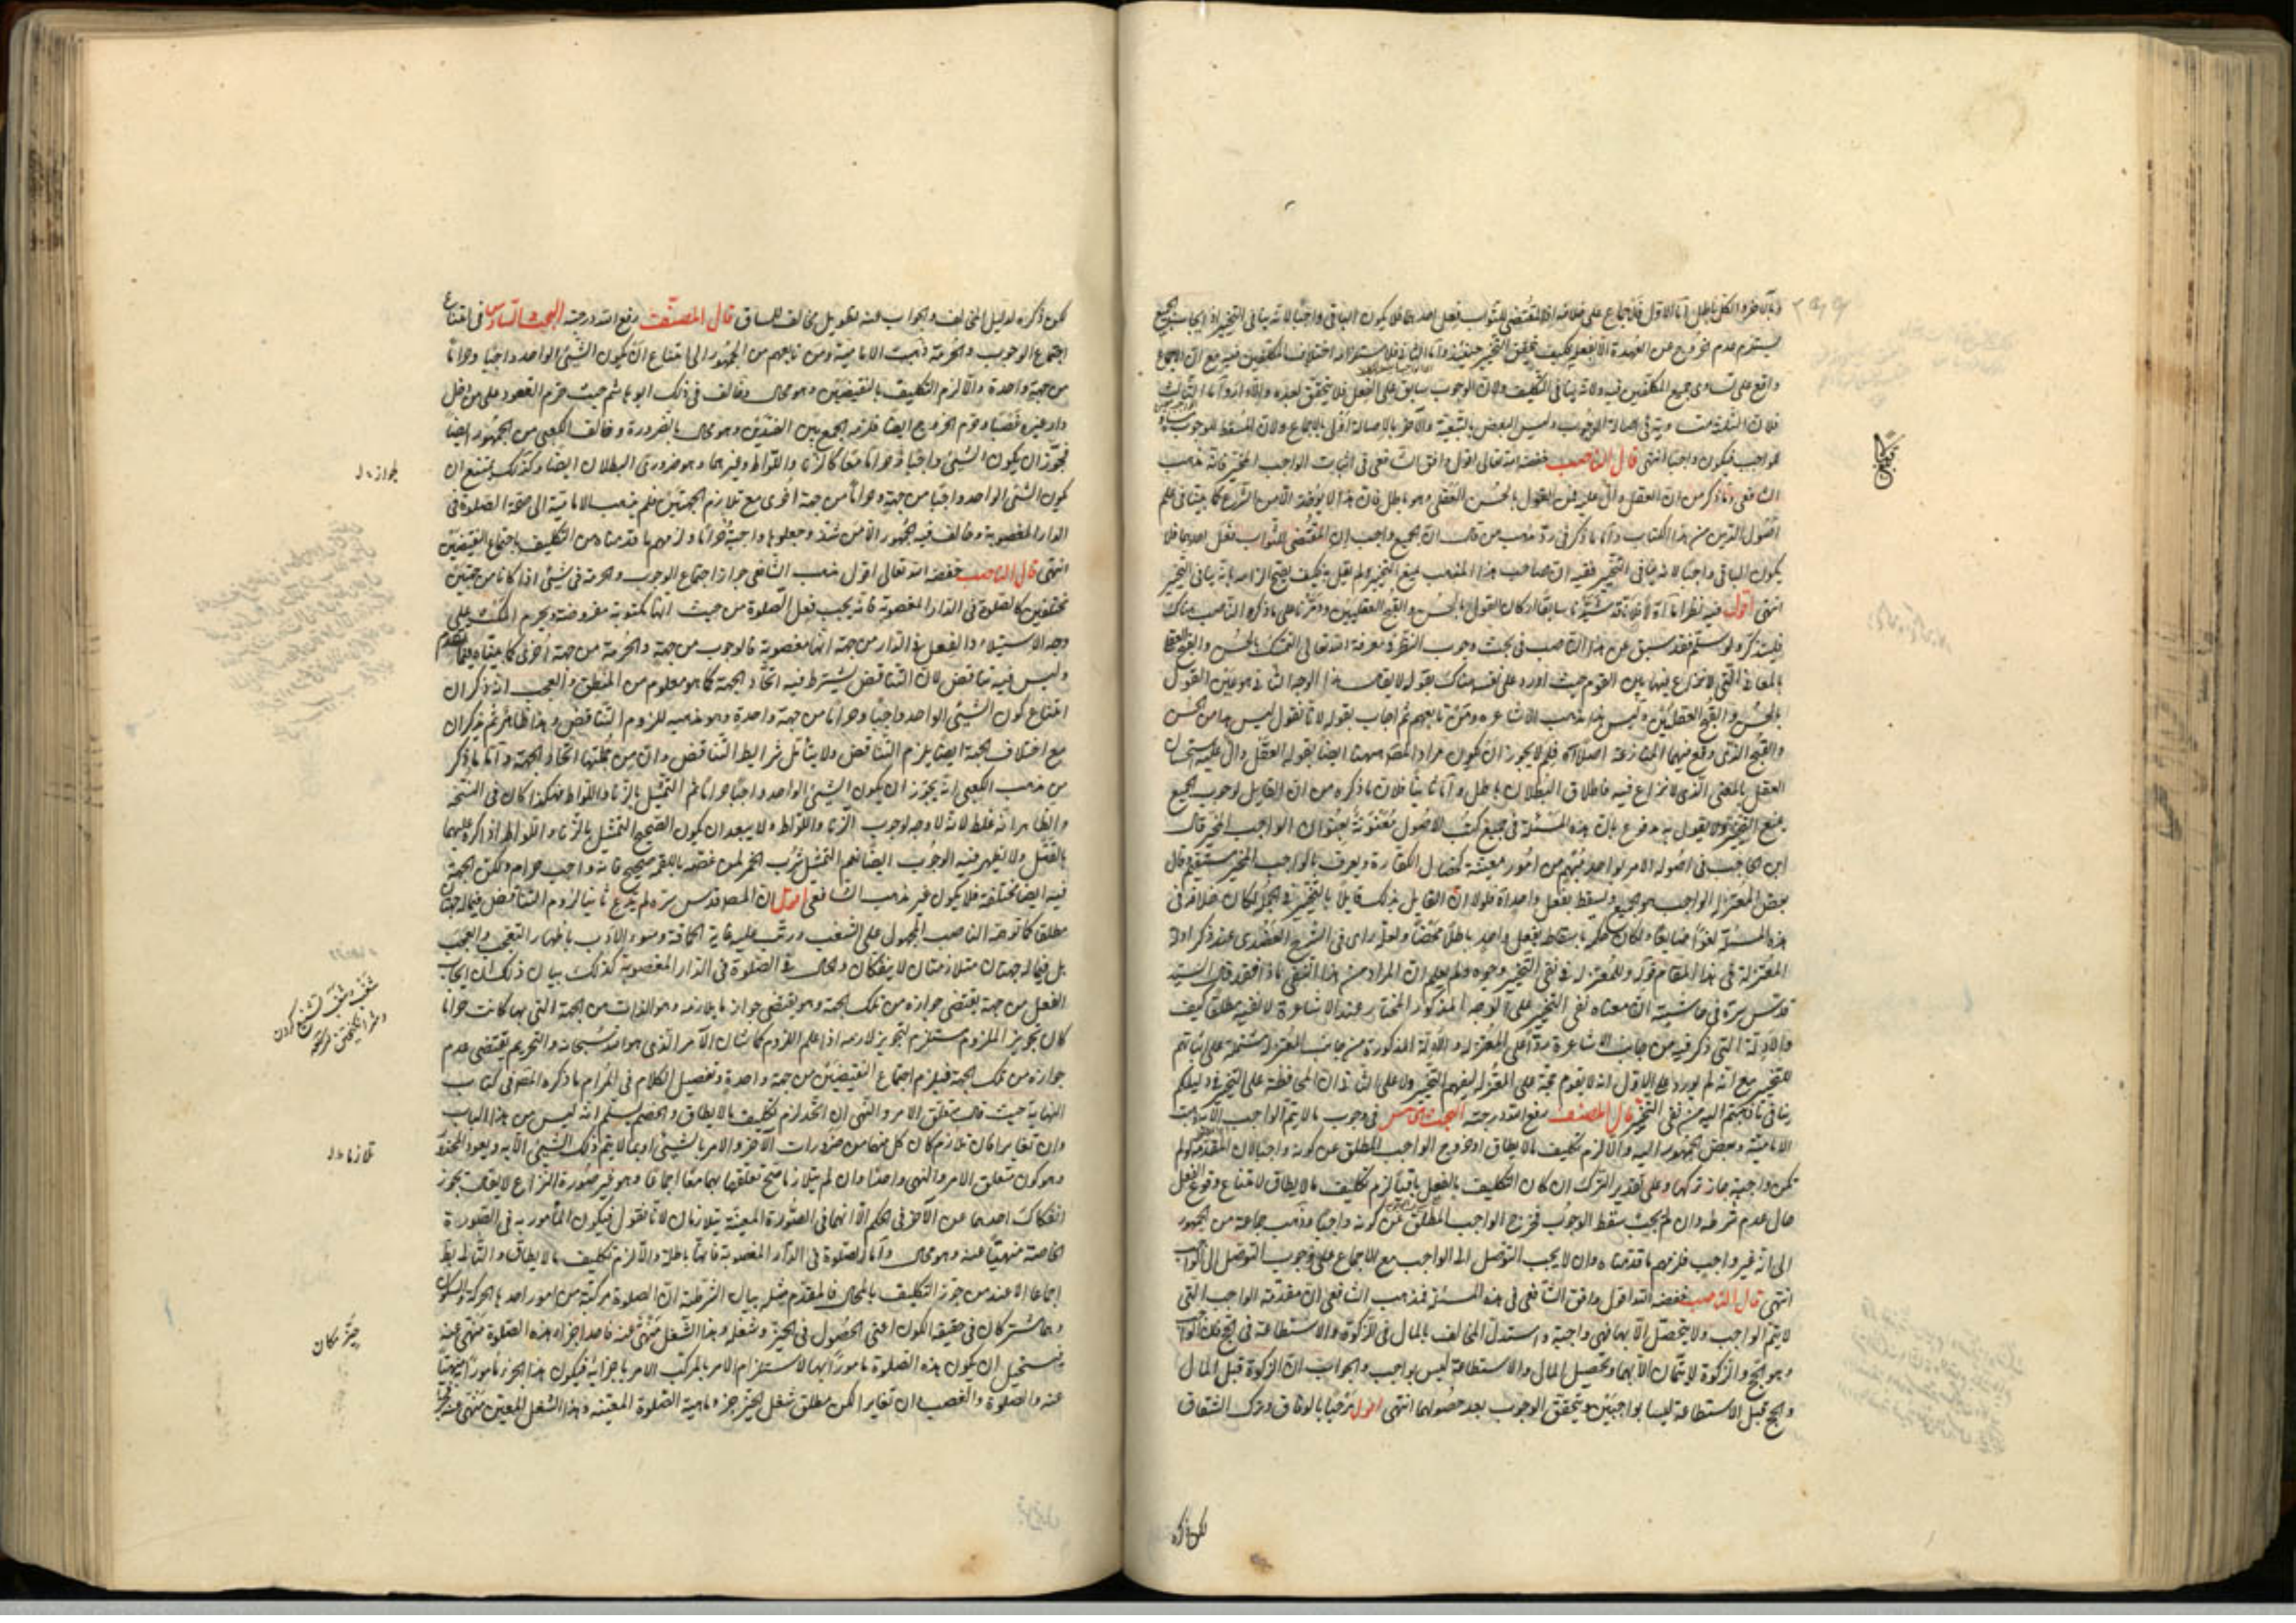 والكل باطل اما الاول فللاجماع على خلافه اذ المقتضى للثواب فعل احدها فلا يكون الباقى واجبا لانه ينافى التخيير اذ ايجاب الجميع
يستلزم عدم الخروج عن العهدة الا بفعله فكيف يتحقق التخيير حينئذ واما الثانى فلاستلزامه اختلاف المكلفين فيه مع ان الاجماع
واقع على تساوى جميع المكلفين فيه ولانه ينافى التكليف ولان الوجوب سابق على الفعل فلا يتحقق بعده والا دار واما الثالث
فلان الثلاثة متساوية فى اصالة الوجوب وليس البعض بالتبعية والآخر بالاصالة اولى بالاجماع ولان المسقط للوجوب
الواجب فيكون واجبا انتهى قال الناصب خفضه الله تعالى اقول وافق الشافعى فى اثبات الواجب المخير فانه مذهب
الشافعى وما ذكر من ان العقل دال عليه فمن القول بالحسن العقلى وهو باطل فان هذا لا يؤخذ الا من الشرع كما بيناه فى علم
اصول الدين من هذا الكتاب واما ما ذكر فى رد مذهب من قال ان الجميع واجب ان المقتضى للثواب فعل احدها فلا
يكون الباقى واجبا لانه ينافى التخيير ففيه ان صاحب هذا المذهب يمنع التخيير ولم يقل به فكيف يصح الزامه بانه ينافى التخيير
انتهى اقول فيه نظر اما اولا فلانا قد شيدنا سابقا اركان القول بالحسن والقبح العقليين ودمرنا على ما ذكره الناصب هناك
فليتذكر ولو سلم فقد سبق عن هذا الناصب فى بحث وجوب النظر ومعرفة الله تعالى التمسك بالحسن والقبح
بالمعانى التى لا نزاع فيها بين القوم حيث اورد على نفسه هناك بقوله لا يقال هذا الوجه الثانى هو عين القول
بالحسن والقبح العقليين وليس هذا مذهب الاشاعرة ومن تابعهم ثم اجاب بقوله لانا نقول ليس هذا من الحسن
والقبح الذى وقع فيهما المنازعة اصلا اه فلم لا يجوز ان يكون مراد المصه ههنا ايضا بقوله العقل دال عليه استحسان
العقل بالمعنى الذى لا نزاع فيه فاطلاق البطلان باطل واما ثانيا فلان ما ذكره من ان القايل بوجوب الجميع
يمنع التخيير ولا يقول به مدفوع بان هذه المسئلة فى جميع كتب الاصول معنونة بعنوان الواجب المخير قال
ابن الحاجب فى اصوله الامر بواحد مبهم من امور معينة كخصال الكفارة ويعرف بالواجب المخير مستقيم وقال
بعض المعتزلة الواجب هو الجميع ويسقط بفعل واحد اه فلولا ان القايل بذلك قايلا بالتخيير فى الجملة لكان خلافه فى
هذه المسئلة لغوا ضايعا ولكان حكمه باسقاط بفعل واحد باطلا محضا ولعله راى فى الشرح العضدى عند ذكر ادلة
المعتزلة فى هذا المقام قوله وللمعتزلة فى نفى التخيير وجوه ولم يعلم ان المراد من هذا النفى ماذا فقد قال السيد
قدس سره فى حاشيته ان معناه نفى التخيير على الوجه المذكور المختار عند الاشاعرة لا نفيه مطلقا كيف
والادلة التى ذكر فيه من جانب الاشاعرة ردا على المعتزلة والادلة المذكورة من جانب المعتزلة مشتملة على اثباتهم
للتخيير مع انه لم يورد على الاول انه لا يقوم حجة على المعتزلة لنفيهم التخيير ولا على الثانى ان المحافظة على التخيير فى دليلكم
ينافى ما ذهبتم اليه من نفى التخيير قال المصنف رفع الله درجته البحث الخامس فى وجوب ما لا يتم الواجب الا به ذهبت
الامامية وبعض الجمهور اليه والا لزم تكليف ما لا يطاق او خروج الواجب المطلق عن كونه واجبا لان المقدمة لو لم
تكن واجبة جاز تركها وعلى تقدير الترك ان كان التكليف بالفعل باقيا لزم تكليف ما لا يطاق لامتناع وقوع الفعل
حال عدم شرطه وان لم يجب سقط الوجوب فخرج الواجب المطلق عن كونه واجبا وذهب جماعة من الجمهور
الى انه غير واجب فلزمهم ما قدمناه وان لا يجب التوصل الى الواجب مع الاجماع على وجوب التوصل الى الواجب
انتهى قال الناصب خفضه الله اقول وافق الشافعى فى هذه المسئلة فمذهب الشافعى ان مقدمة الواجب التى
لا يتم الواجب ولا يتحصل الا بها فهى واجبة واستدل المخالف بالمال فى الزكوة والاستطاعة فى الحج فان الواجب
وهو الحج والزكوة لا يتمان الا بهما وتحصيل المال والاستطاعة ليس بواجب والجواب ان الزكوة قبل المال
والحج قبل الاستطاعة ليسا بواجبين ويتحقق الوجوب بعد حصولهما انتهى اقول مرحبا بالوفاق وترك الشقاق
لكن ذكره
لكن ذكره لدليل المخالف والجواب عنه تطويل مخالف للسياق قال المصنف رفع الله درجته البحث السادس فى امتناع
اجتماع الوجوب والحرمة ذهبت الامامية ومن تابعهم من الجمهور الى امتناع ان يكون الشىء الواحد واجبا وحراما
من جهة واحدة والا لزم التكليف بالنقيضين وهو محال وخالف فى ذلك ابو هاشم حيث حرم القعود على من دخل
دار غيره غصبا وحرم الخروج ايضا فلزمه الجمع بين الضدين وهو محال بالضرورة وخالف الكعبى من الجمهور ايضا
فجوز ان يكون الشىء واجبا وحراما معا كالزنا واللواط وغيرهما وهو ضرورى البطلان ايضا وكذلك يمتنع ان
يكون الشىء الواحد واجبا من جهة وحراما من جهة اخرى مع تلازم الجهتين فلم يذهب الامامية الى صحة الصلوة فى
الدار المغصوبة وخالف فيه الجمهور الا من شذ وجعلوها واجبة وحراما ولزمهم ما قدمناه من التكليف باجتماع النقيضين
انتهى قال الناصب خفضه الله تعالى اقول مذهب الشافعى جواز اجتماع الوجوب والحرمة فى شىء اذا كانا من جهتين
مختلفتين كالصلوة فى الدار المغصوبة فانه يجب فعل الصلوة من حيث انها مكتوبة مفروضة ويحرم المكث على
وجه الاستيلاء والفعل فى الدار من جهة انها مغصوبة فالوجوب من جهة والحرمة من جهة اخرى كما حققناه فيما تقدم
وليس فيه تناقض لان التناقض يشترط فيه اتحاد الجهة كما هو معلوم من المنطق والعجب انه ذكر ان
امتناع كون الشىء الواحد واجبا وحراما من جهة واحدة وهو مذهبه للزوم التناقض وهذا ظاهر ثم يذكر ان
مع اختلاف الجهة ايضا يلزم التناقض ولا يتأمل شرايط التناقض وان من جملتها اتحاد الجهة واما ما ذكر
من مذهب الكعبى انه يجوز ان يكون الشىء الواحد واجبا حراما ثم التمثيل بالزنا واللواط فهكذا كان فى النسخة
والظاهر انه غلط لانه لا وجه لوجوب الزنا واللواط ولا يبعد ان يكون الصحيح التمثيل بالزنا واللواط اذا اكره عليهما
بالقتل ولا يظهر فيه الوجوب ايضا نعم التمثيل بشرب الخمر لمن غصه باللقمة صحيح فانه واجب حرام ولكن الجهة
فيه ايضا مختلفة فلا يكون غير مذهب الشافعى اقول ان المصه قدس سره لم يدع ثانيا لزوم التناقض فيما له جهتان
مطلقا كما توهمه الناصب المجبول على الشغب ورتب عليه غاية الحماقة وسوء الادب باظهار التعجب والعجب
بل فيما له جهتان متلازمتان لا ينفكان والحال فى الصلوة فى الدار المغصوبة كذلك بيان ذلك ان ايجاب
الفعل من جهة يقتضى جوازه من تلك الجهة وهو يقتضى جواز ما يلازمه وهو الذات من الجهة التى بها كانت حراما
كان تجويز الملزوم مستلزم لتجويز لازمه اذا علم اللزوم كما شان الآمر الذى هو الله سبحانه والتحريم يقتضى عدم
جوازه من تلك الجهة فيلزم اجتماع النقيضين من جهة واحدة وتفصيل الكلام فى المرام ما ذكره المصه فى كتاب
النهاية حيث قال متعلق الامر والنهى ان اتحد لزم تكليف ما لا يطاق والخصم يسلم انه ليس من هذا الباب
وان تغايرا فان تلازما كان كل منهما من ضرورات الآخر والامر بالشىء امر بما لا يتم ذلك الشىء الا به ويعود المحذور
وهو كون متعلق الامر والنهى واحدا وان لم يتلازما صح تعلقهما بهما معا اجماعا وهو غير صورة النزاع لا يقال يجوز
انفكاك احدهما عن الآخر فى الحكم الا انهما فى الصورة المعينة يتلازمان لانا نقول فيكون المأمور به فى الصورة
الخاصة منهيا عنه وهو محال واما الصلوة فى الدار المغصوبة فانها باطلة والا لزم تكليف ما لا يطاق والتالى باطل
اجماعا الا عند من جوز التكليف بالمحال فالمقدم مثله بيان الشرطية ان الصلوة مركبة من امور احدها الحركة والسكون
وهما مشتركان فى حقيقة الكون اعنى الحصول فى الحيز وشغله وهذا الشغل منهى عنه فاحد اجزاء هذه الصلوة منهى عنه
فيستحيل ان يكون هذه الصلوة مامورا بها لاستلزام الامر بالمركب الامر باجزائه فيكون هذا الجزء مامورا به منهيا
عنه والصلوة والغصب ان تغايرا لكن مطلق شغل الحيز جزء ماهية الصلوة المعينة وهذا الشغل المعين منهى عنه
تلازما
حيز مكان